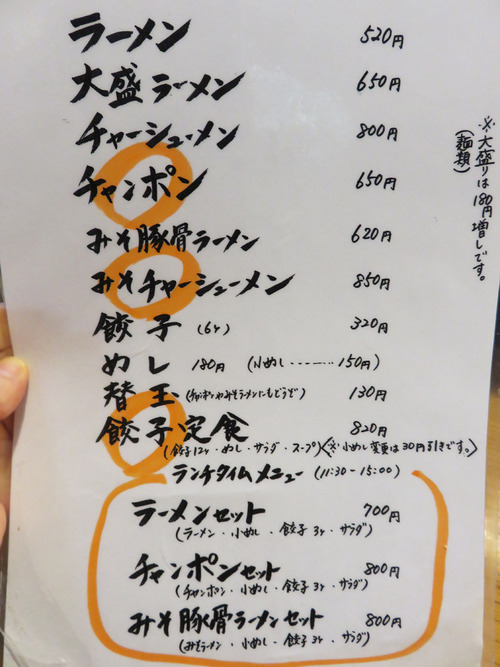 ラーメン 520円
大盛ラーメン 650円
チャーシューメン 800円
チャンポン 650円
みそ豚骨ラーメン 620円
みそチャーシューメン 850円
餃子 (6ケ) 320円
めし 180円 (小めし……150円)
替玉 (チャンポンやみそラーメンにもどうぞ) 130円
餃子定食 820円
(餃子12ケ・めし・サラダ・スープ)(※小めし変更は30円引きです。)
ランチタイムメニュー (11:30-15:00)
ラーメンセット 700円
(ラーメン・小めし・餃子3ケ・サラダ)
チャンポンセット 800円
(チャンポン・小めし・餃子3ケ・サラダ)
みそ豚骨ラーメンセット 800円
(みそラーメン・小めし・餃子3ケ・サラダ)
※大盛りは180円増しです。
(麺類)